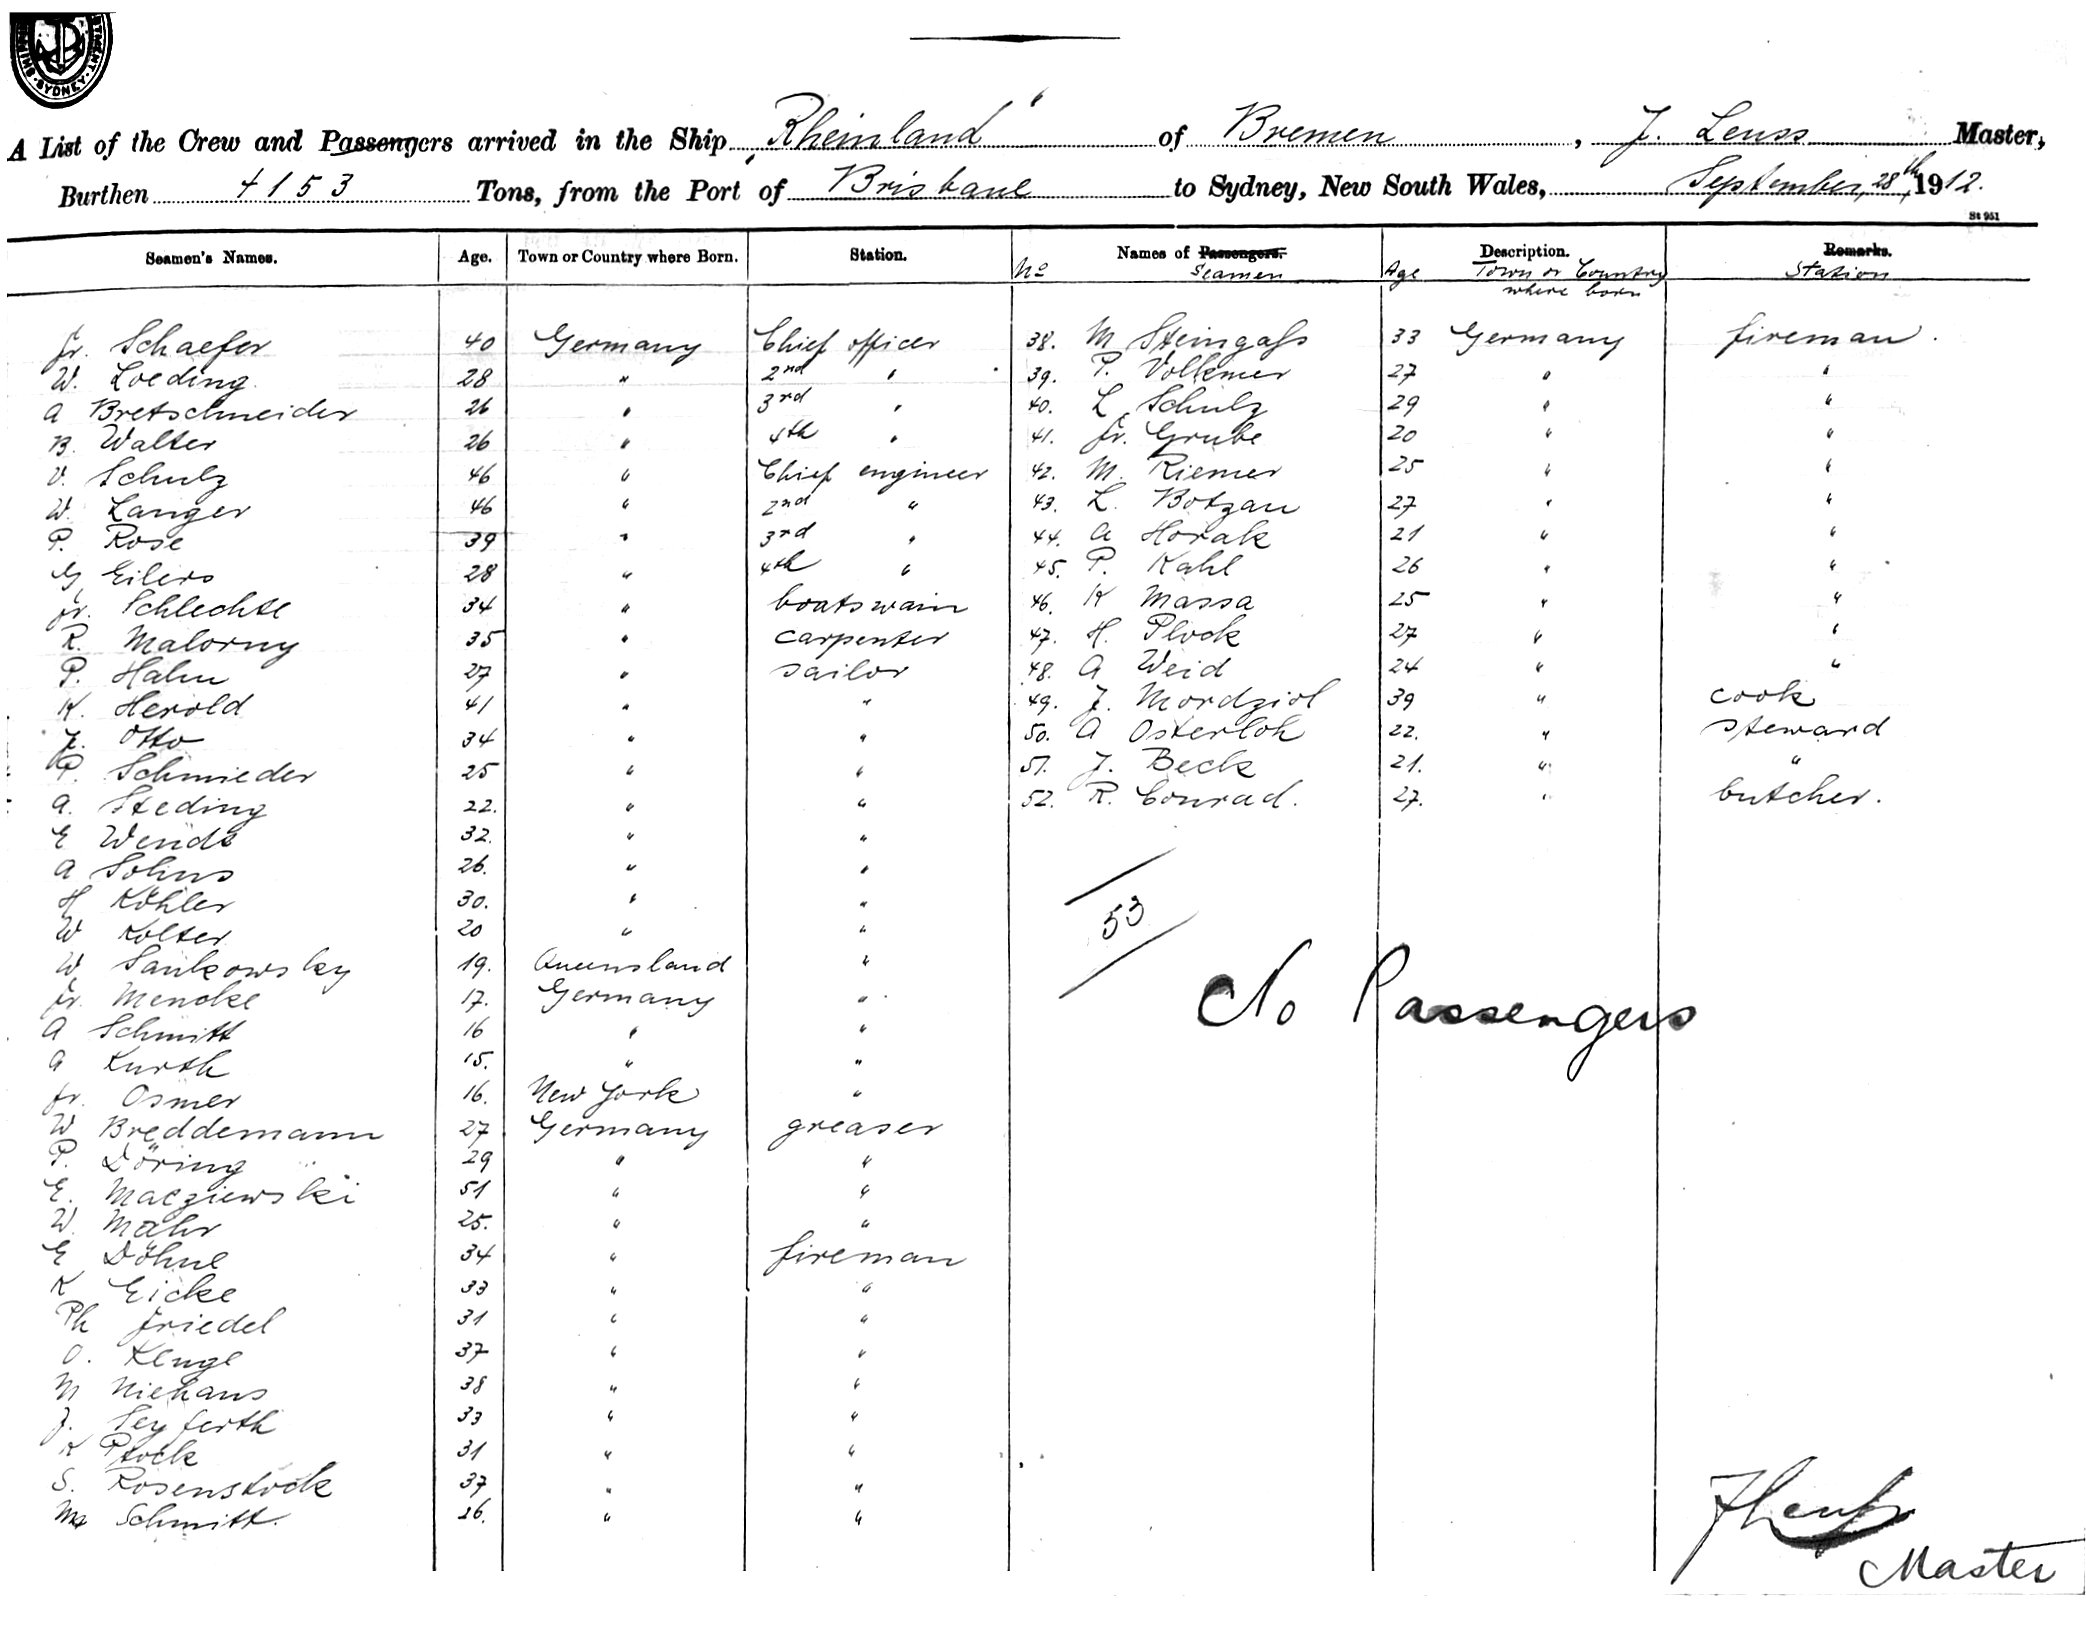 SYDNEY
A List of the Crew and Passengers arrived in the Ship "Rheinland" of Bremen, J. Leuss Master,
Burthen 4153 Tons, from the Port of Brisbane to Sydney, New South Wales, September, 28th, 1912.
St 951
Seamen's Names. Age. Town or Country where Born. Station. No Names of Passengers. Seamen Age Description. Town or Country where born Remarks. Station
Fr. Schaefer 40 Germany Chief officer 38. M Steingass 33 Germany fireman.
W. Loeding 28 " 2nd " 39. P. Volkmer 27 " "
A Bretschneider 26 " 3rd " 40. L Schulz 29 " "
B. Walter 26 " 4th " 41. Fr. Grube 20 " "
V. Schulz 46 " Chief engineer 42. M. Riemer 25 " "
W. Langer 46 " 2nd " 43. L. Botzau 27 " "
P. Rose 39 " 3rd " 44. A Horak 21 " "
G Eilers 28 " 4th " 45. P. Kahl 26 " "
Fr. Schlechte 34 " boatswain 46. K Massa 25 " "
R. Malorny 35 " carpenter 47. H. Plock 27 " "
P. Hahn 27 " sailor 48. A Weid 24 " "
K. Herold 41 " " 49. J. Mordziol 39 " cook
F. Otto 34 " " 50. A Osterloh 22. " steward
P. Schmieder 25 " " 51. J. Beck 21. " "
A. Steding 22. " " 52. R. Conrad. 27. " butcher.
E Wendt 32. " "
A Sohns 26. " "
H Köhler 30. " "
W Kolter 20 " "
53
W. Sankowsky 19. Queensland "
Fr. Mencke 17. Germany "
No Passengers
A Schmitt 16 " "
A Kurth 15. " "
Fr. Osmer 16. New York "
W Breddemann 27 Germany greaser
P. Döring 29 " "
E. Maeziewski 51 " "
W. Mahr 25. " "
E Döhne 34 " fireman
K Eicke 33 " "
Ph Friedel 31 " "
O. Kluge 37 " "
M Niehaus 38 " "
J. Seyferth 33 " "
K Ptock 31 " "
S. Rosenstock 37 " "
M Schmitt. 26. " "
J Leuss
Master